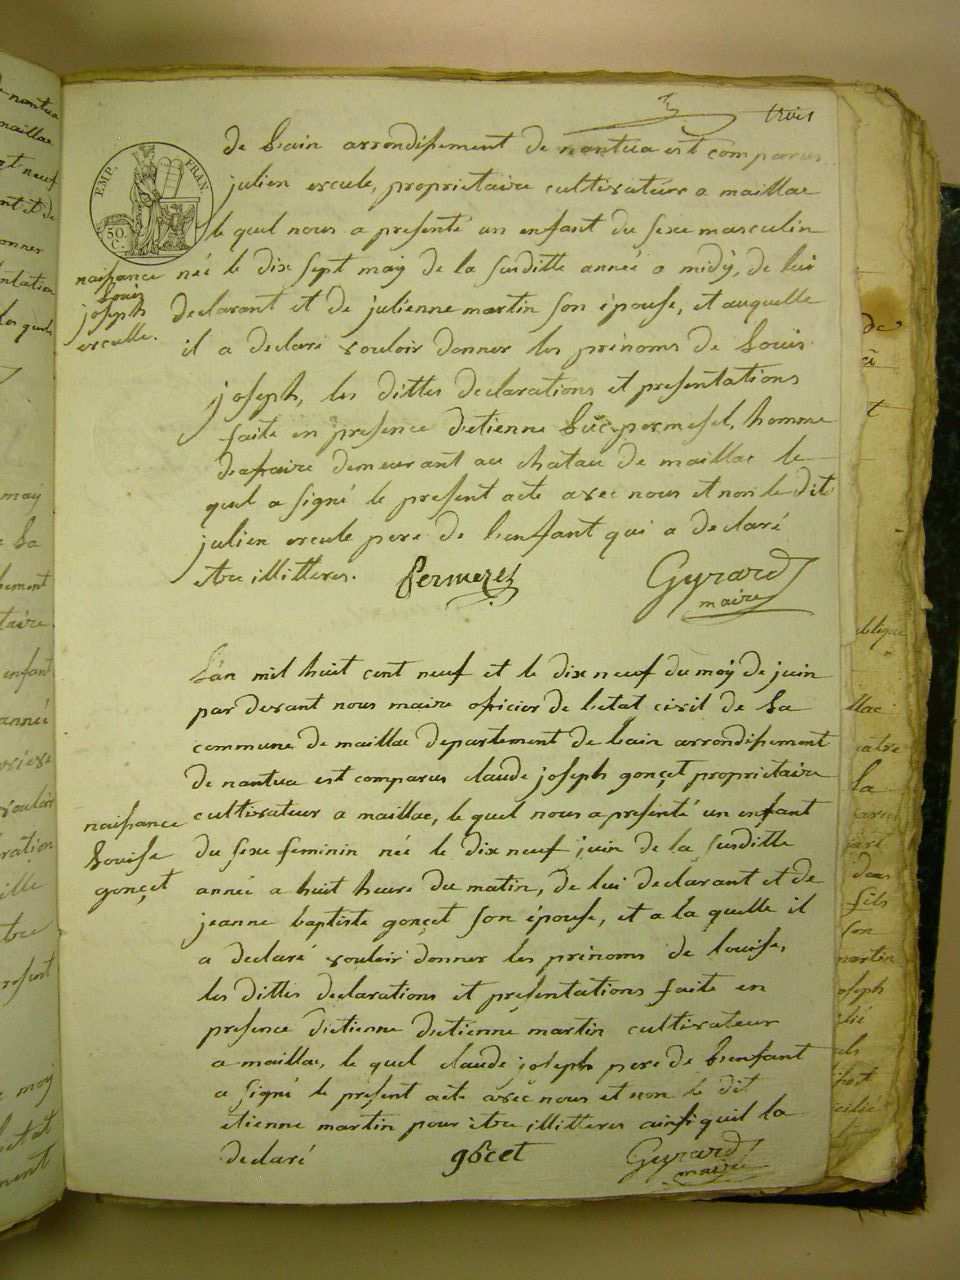 trois
EMP. FRAN.
50. C.
de Lain arrondissement de nantua est comparus
julien ercule, proprietaire cultivateur a maillac
le quel nous a presenté un enfant du sexe masculin
née le dix sept may de la susditte année a midy, de lui
declarant et de julienne martin son épouse, et auquelle
il a declaré vouloir donner les prénoms de Louis
joseph, les dittes declarations et presentations
faite en presence detienne Luc permesel, homme
dafraire demeurant au chatau de maillac le
quel a signé le present acte avec nous et non le dit
julien ercule pere de lenfant qui a declaré
etre illitteres.
naissance
Louis
joseph
erculle.
Permezel
Gyrard
maire
Lan mil huit cent neuf et le dix neuf du moy de juin
par devant nous maire oficier de letat civil de La
commune de maillac departement de Lain arrondissement
de nantua est comparus claude joseph gonçet proprietaire
cultivateur a maillac, le quel nous a presenté un enfant
du sexe feminin née le dix neuf juin de la susditte
année a huit heure du matin, de lui declarant et de
jeanne baptiste gonçet son épouse, et a la quelle il
a declaré vouloir donner les prénoms de louise,
les dittes declarations et presentations faite en
presence dietienne detienne martin cultivateur
a maillac, le quel claude joseph pere de Lenfant
a signé le present acte avec nous et non le dit
etienne martin pour être illitteres ainsi quil la
declaré
naissance
Louise
gonçet
göcet
Gyrard
maire